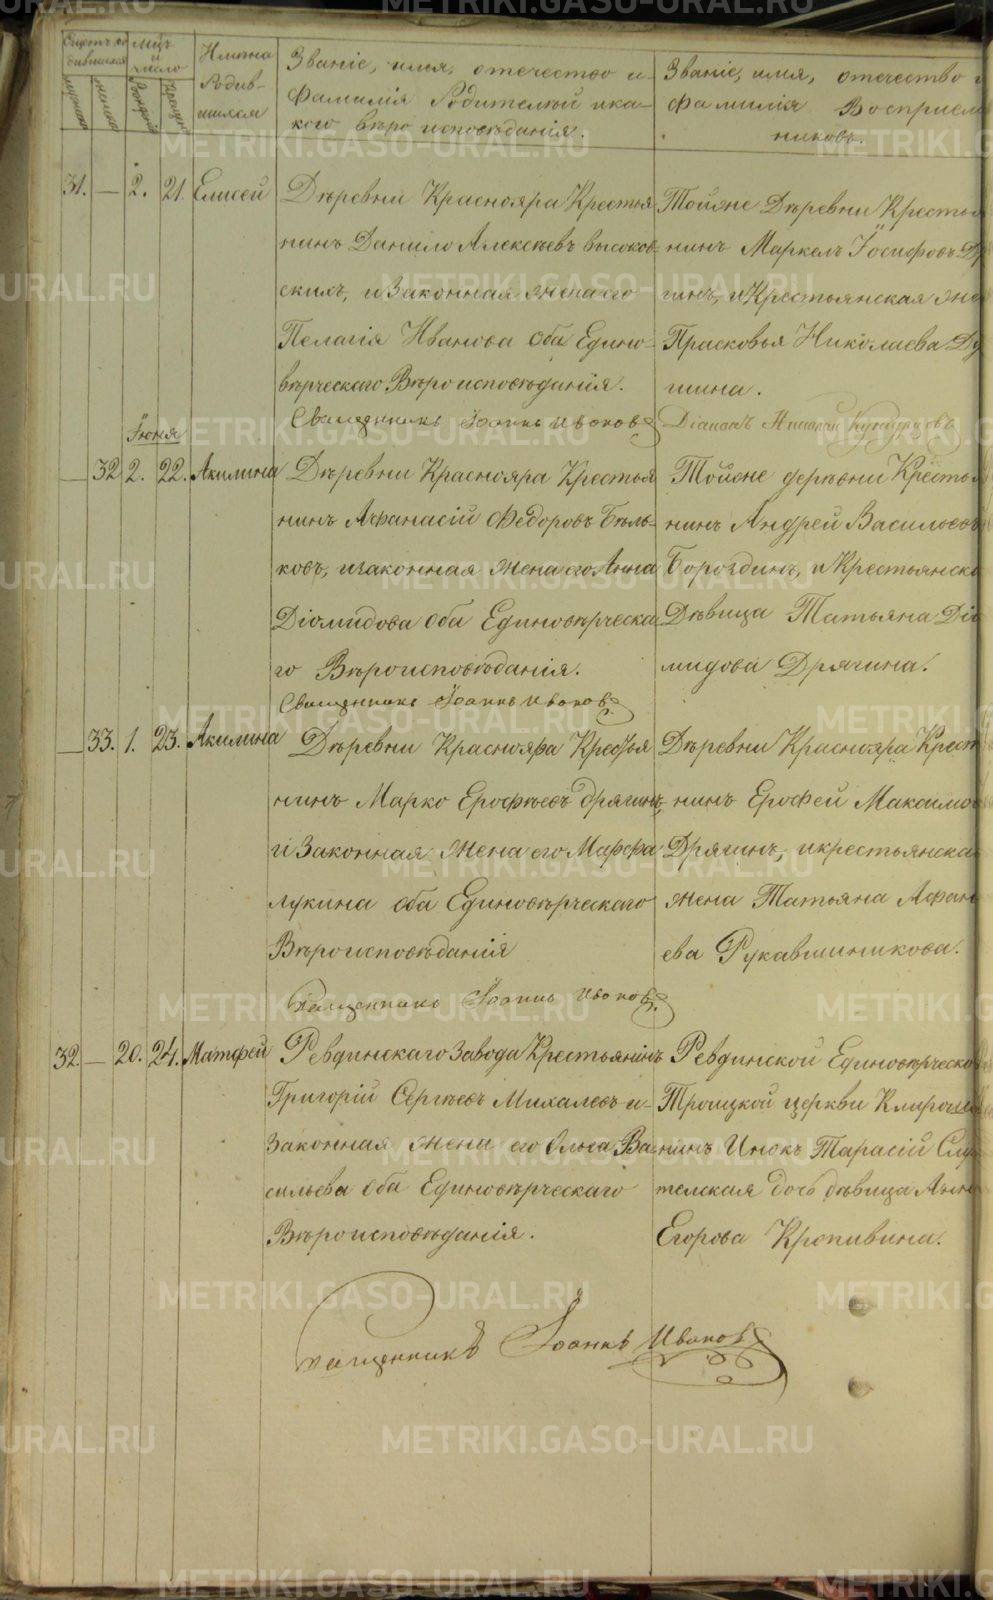 Счетъ ро
дившихся
мужеска
женска
Мцъ
и
число
Рожденія
Крещен
Имена
Родив-
шихся
Званіе, имя, отечество и
Фамилія Родителей и ка-
кого веро исповѣданія.
Званіе, имя, отечество и
Фамилія Восприем
никовъ.
31. — 2. 21. Елисей
Дѣревни Краснояра Крестья
нинъ Данило Алексѣевъ Высоков-
скихъ, и Законная жена его
Пелагія Иванова оба Едино-
вѣрческаго Вѣроисповѣданія.
Священникъ Іоаннъ Ивановъ
Тойжe Дѣревни Крестья
нинъ Маркелъ Іосифовъ Др
гинъ, и Крестьянская жен
Прасковья Николаева Др
гина.
Діаконъ
Іюня
— 32 2. 22. Акилина
Дѣревни Краснояра Крестья
нинъ Афанасій Федоровъ Бѣль-
ковъ, и законная жена его Анна
Діомидова оба Единовѣрческа
го Вѣроисповѣданія.
Священникъ Іоаннъ Ивановъ
Тойже деревни Кресть
нинъ Андрей Васильевъ
Бороздинъ, и Крестьянска
Дѣвица Татьяна Діо
мидова Дрягина.
— 33. 1. 23. Акилина
Дѣревни Краснояра Крестья
нинъ Марко Ерофѣевъ Дрягинъ,
и Законная жена его Марфа
Лукина оба Единовѣрческаго
Вѣроисповѣданія
Священникъ Іоаннъ Ивановъ
Дѣревни Краснояра Крест
нинъ Ерофей Максимо
Дрягинъ, и крестьянска
жена Татьяна Афан
ева Рукавишникова.
32. — 20. 24. Матфей
Ревдинскаго Завода Крестьянинъ
Григорій Сергѣевъ Михалевъ и-
Законная жена его Ольга Ва-
сильева оба Единовѣрческаго
Вѣроисповѣданія.
Ревдинской Единовѣрческо
Троицкой церкви Клироша
нинъ Инокъ Тарасій Слу
тельская дочь дѣвица Анн
Егорова Кропивина.
Священникъ Іоаннъ Ивановъ
METRIKI.GASO-URAL.RU